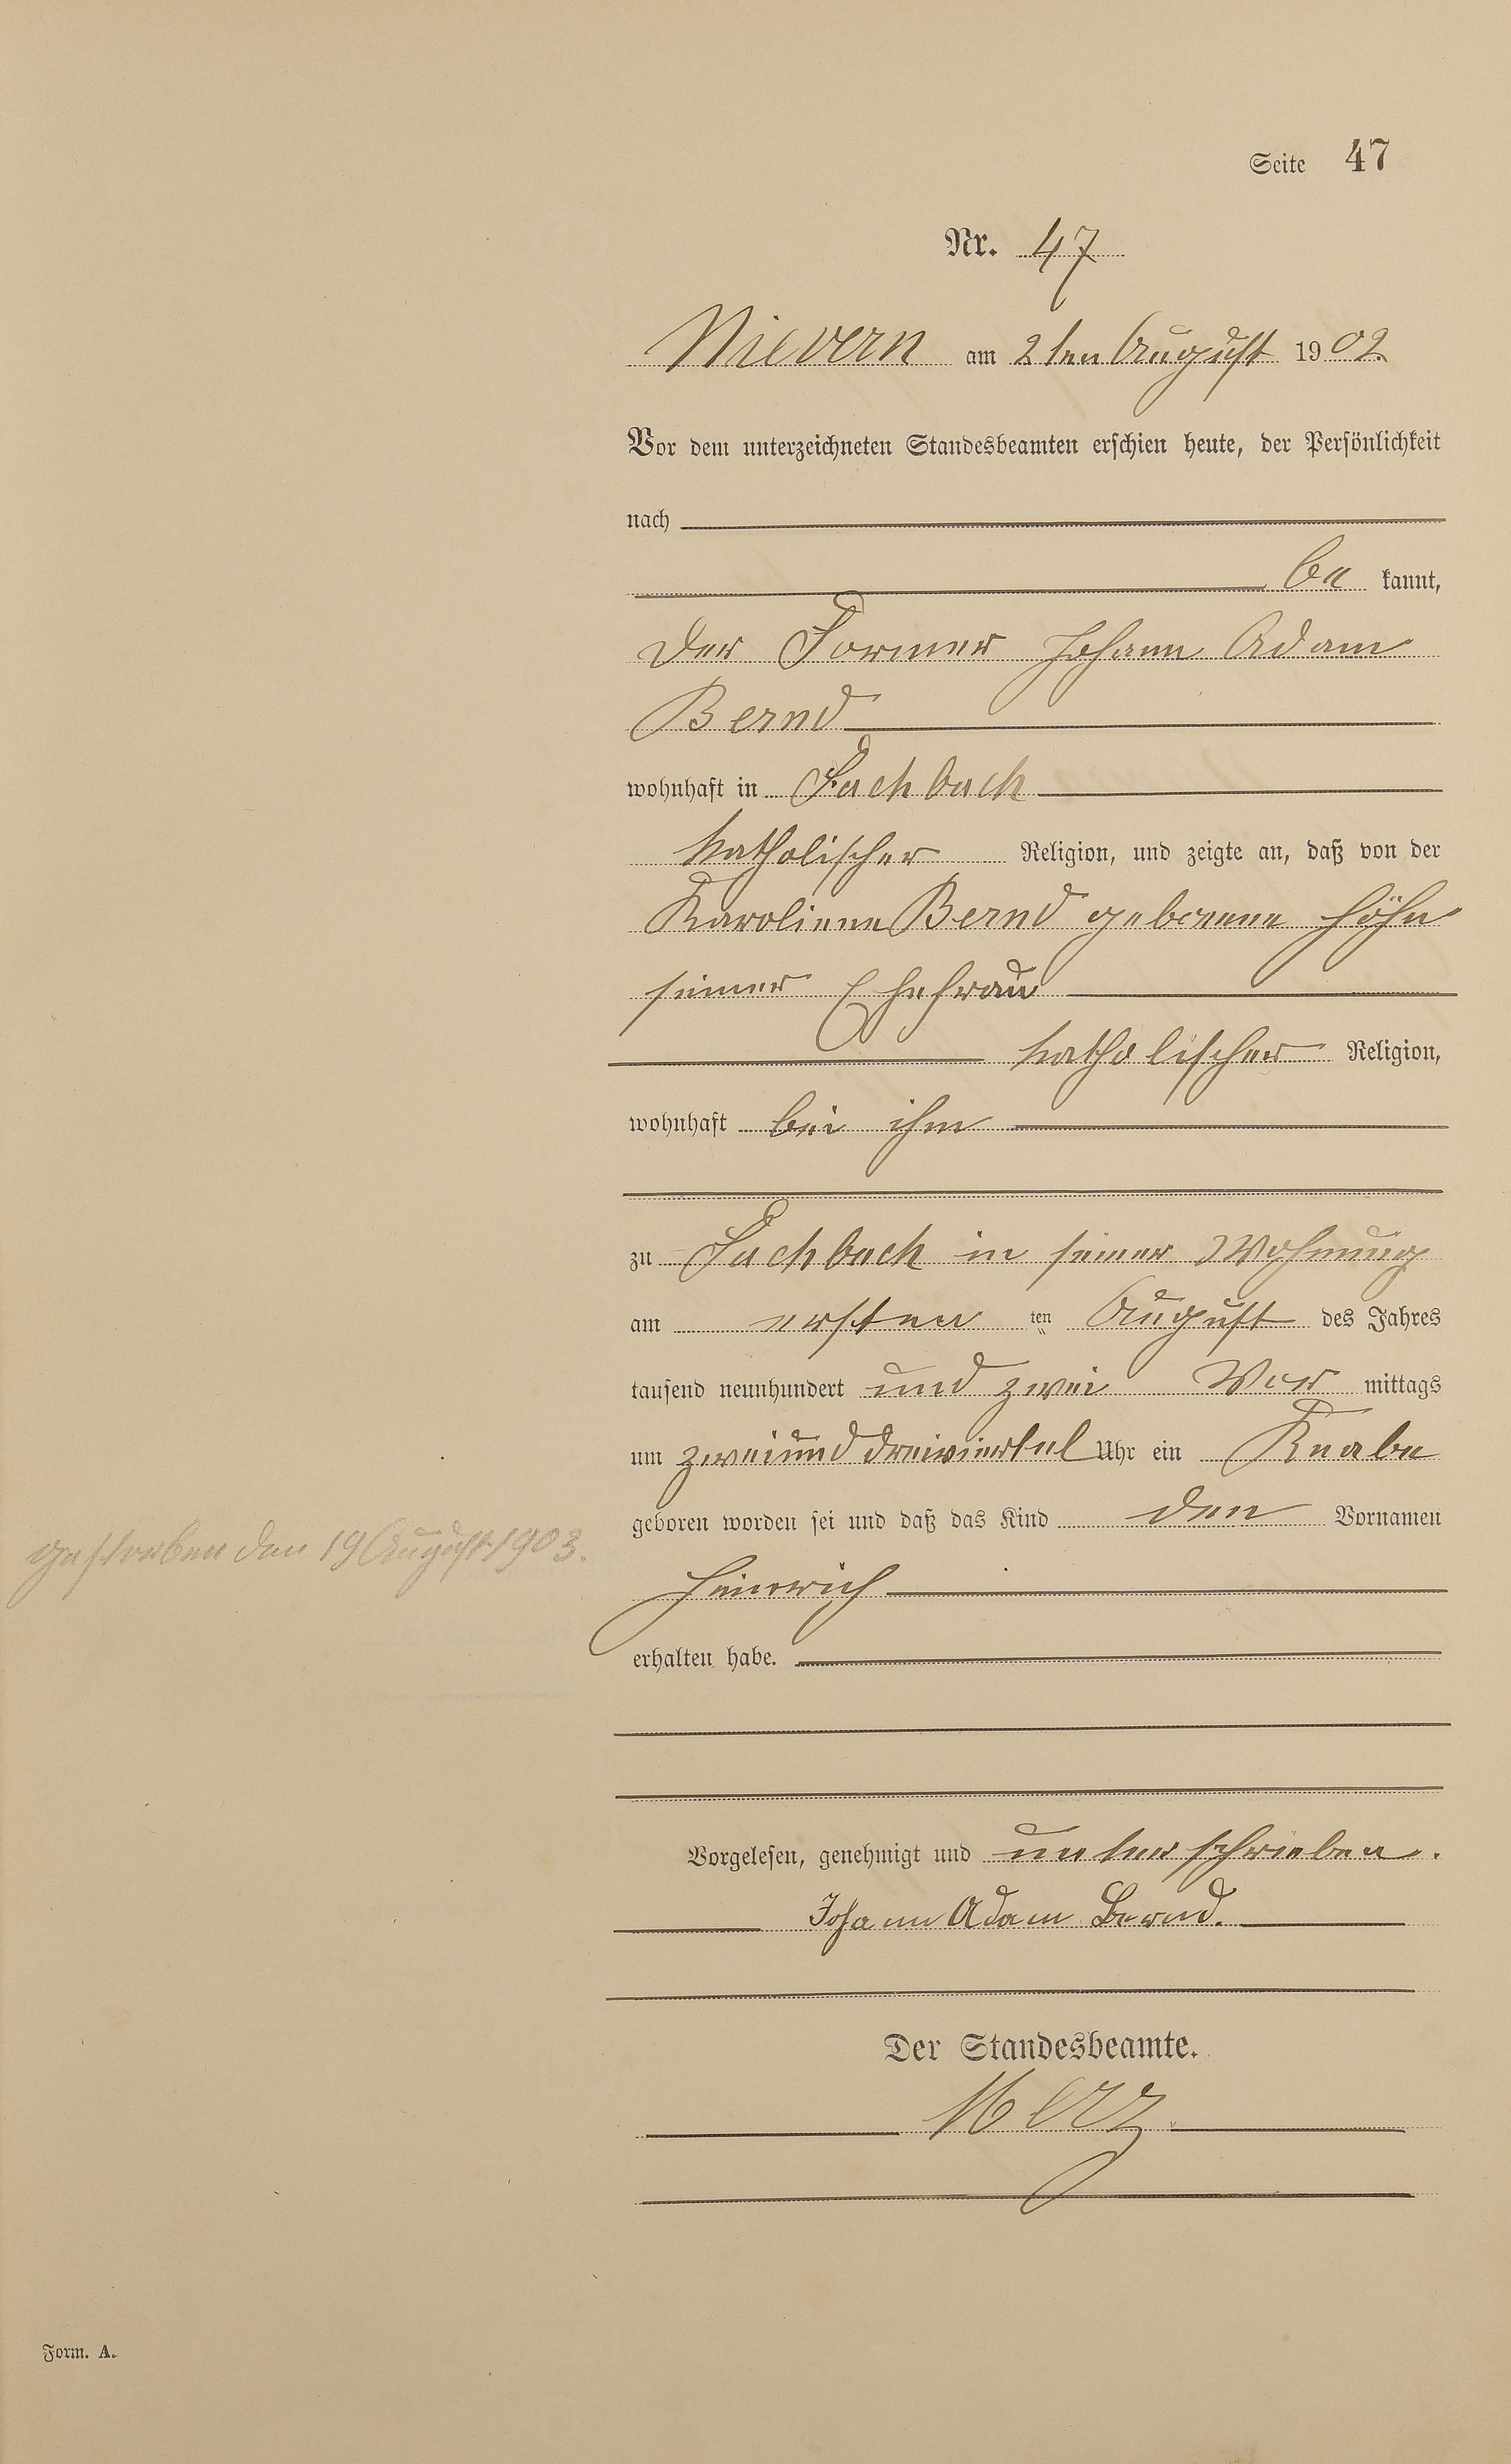 Seite 47
Nr. 47
Nievern am 2ten August 1902.
Vor dem unterzeichneten Standesbeamten erschien heute, der Persönlichkeit
nach
be kannt,
der Former Johann Adam
Bernd
wohnhaft in Fachbach
katholischer Religion, und zeigte an, daß von der
Karoliene Bernd geborene Höhn
seiner Ehefrau
katholischer Religion,
wohnhaft bei ihm
zu Fachbach in seiner Wohnung
am ersten ten August des Jahres
tausend neunhundert und zwei Vor mittags
um zweiunddreiviertel Uhr ein Knabe
geboren worden sei und daß das Kind den Vornamen
gestorben den 19 August 1903.
Heinrich
erhalten habe.
Vorgelesen, genehmigt und unterschrieben.
Johann Adam Bernd.
Der Standesbeamte.
Merz
Form. A.